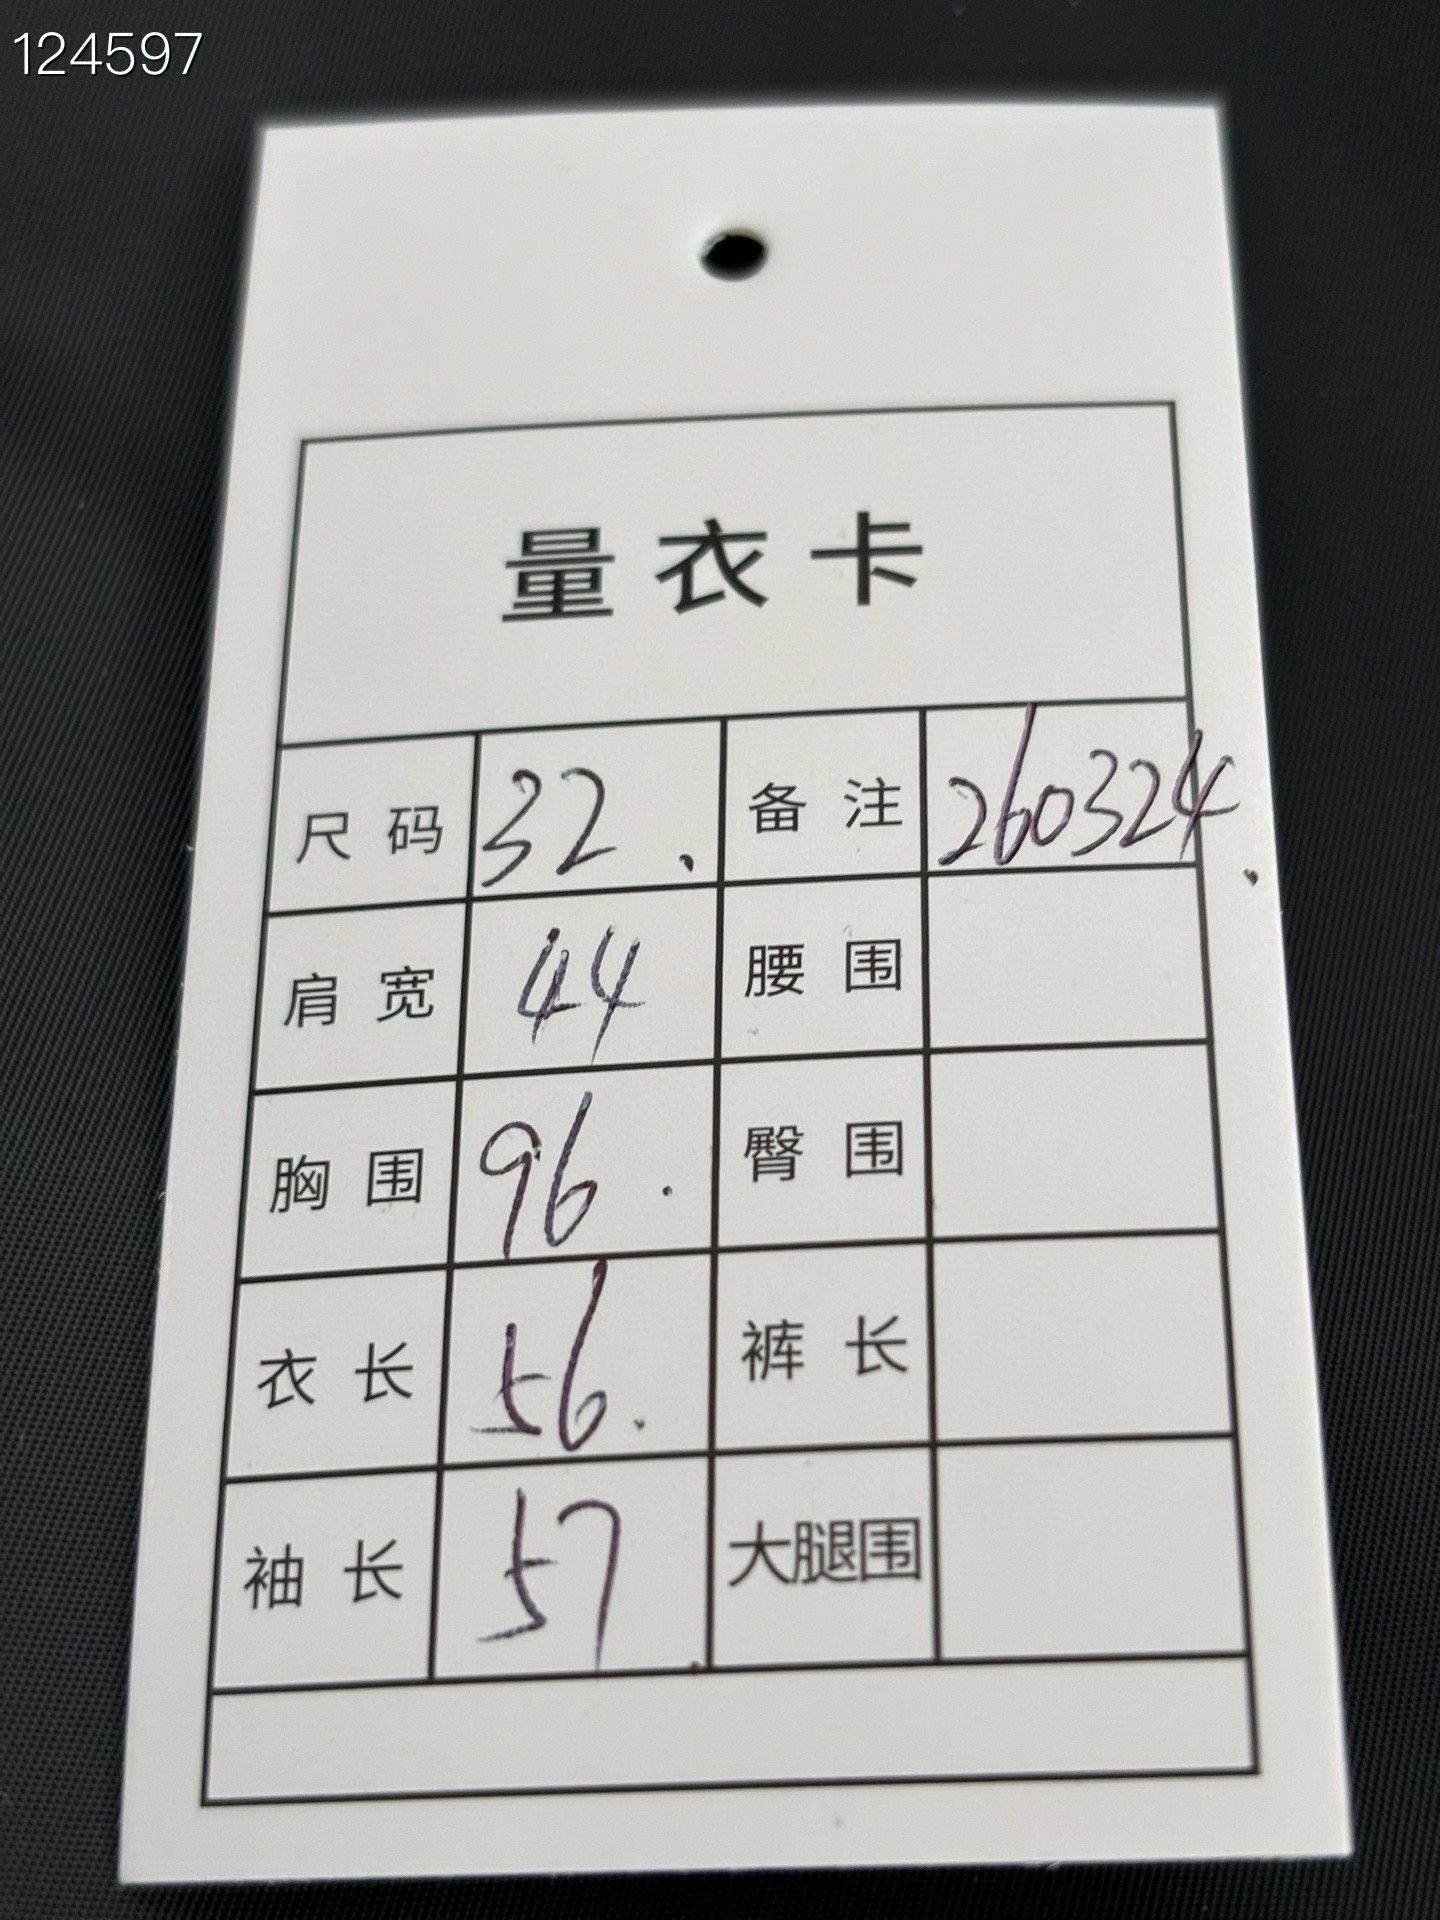 124597
量衣卡
尺码 32. 备注 260324.
肩宽 44 腰围
胸围 96. 臀围
衣长 56. 裤长
袖长 57. 大腿围